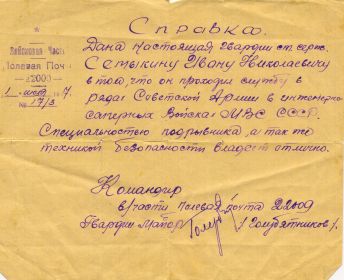 Справка.
Войсковая Часть
Полевая Почта
22009
1 июля 1947
№ 17/3
Дана настоящая гвардии ст. серж.
Семыкину Ивану Николаевичу
в том, что он проходил службу в
рядах Советской Армии в инженерно
саперных Войсках МВС СССР.
Специальностью подрывника, а так же
техникой безопасности владеет отлично.
Командир
в/части полевая почта 22009
Гвардии майор /Голубятников/